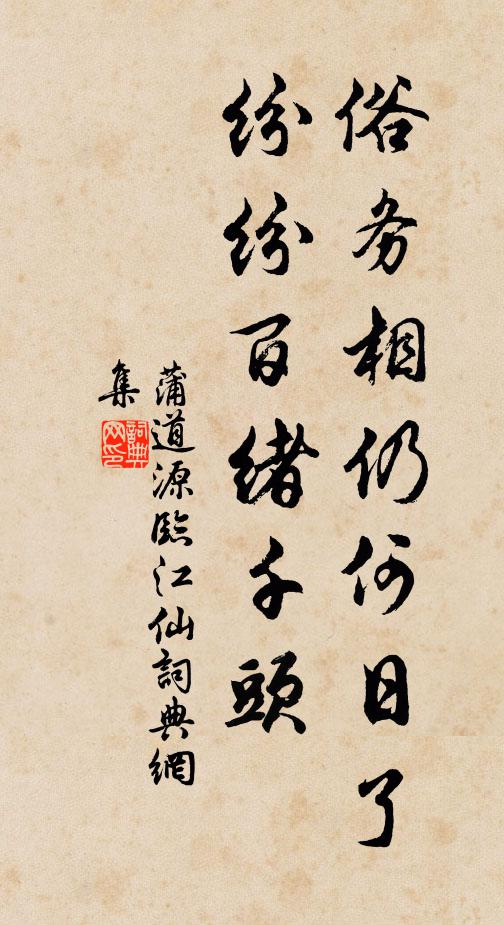 俗务相仍何日了
纷纷百绪千头
蒲道源臨江仙詞典網
集
詞典网印